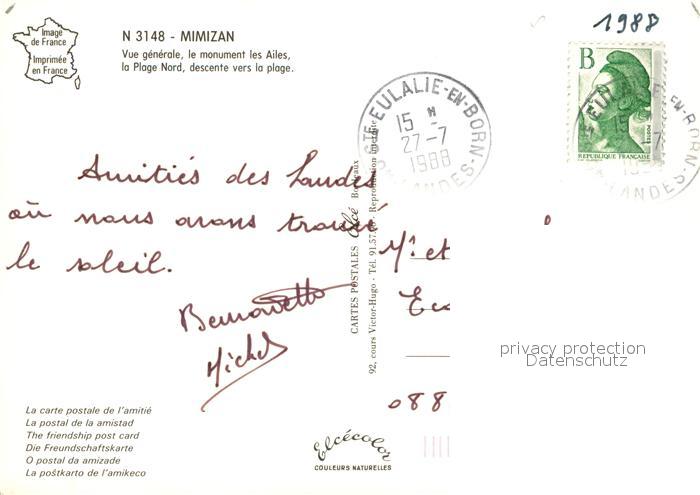 Image
de France
Imprimée
en France
N 3148 - MIMIZAN
Vue générale, le monument les Ailes,
la Plage Nord, descente vers la plage.
1988
B
REPUBLIQUE FRANÇAISE
STE EULALIE-EN-BORN
15 H
27-7
1988
LANDES
Amitiés des Landes
où nous avons trouvé
le soleil.
Bernadette
Michel
CARTES POSTALES Elcé Bordeaux
92, cours Victor-Hugo - Tél. 91.57. - Reproduction interdite
Mr et
088
privacy protection
Datenschutz
La carte postale de l'amitié
La postal de la amistad
The friendship post card
Die Freundschaftskarte
O postal da amizade
La poŝtkarto de l'amikeco
Elcécolor
COULEURS NATURELLES